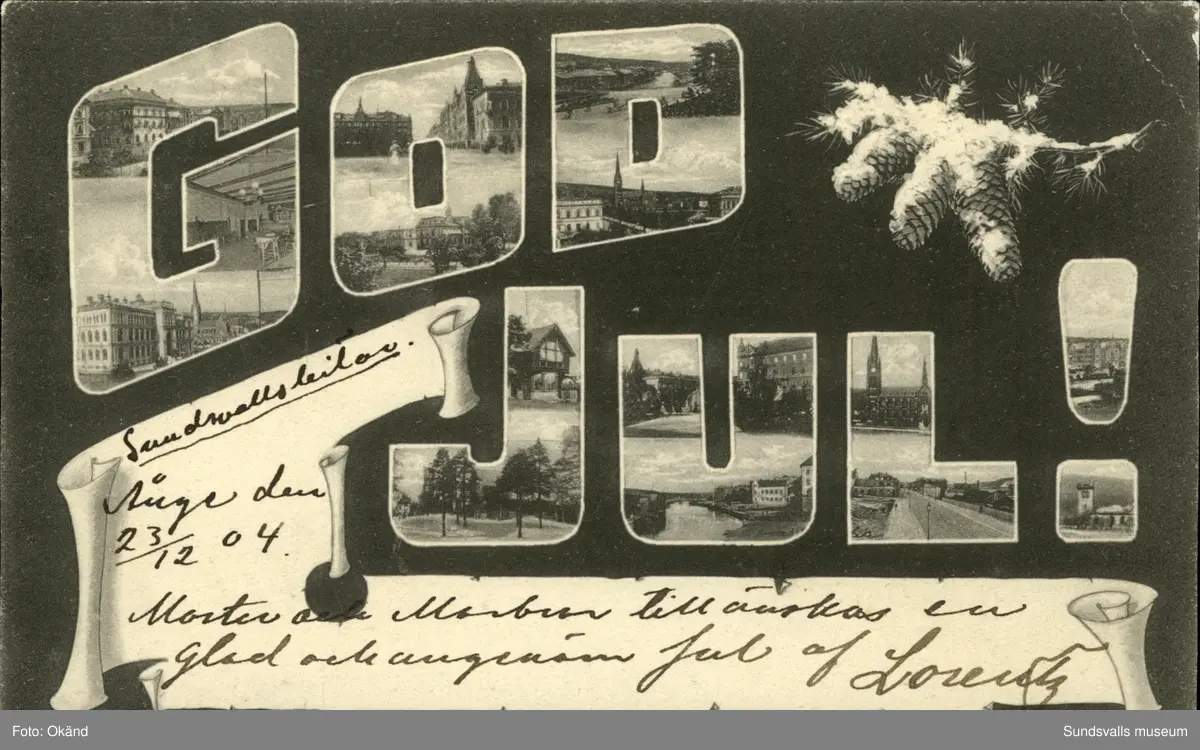 GOD
JUL!
Sundsvallsbitar.
Ånge den
23/12 04.
Moster och Morbror tillönskas en
Glad och angenäm jul af Lorentz
Foto: Okänd
Sundsvalls museum